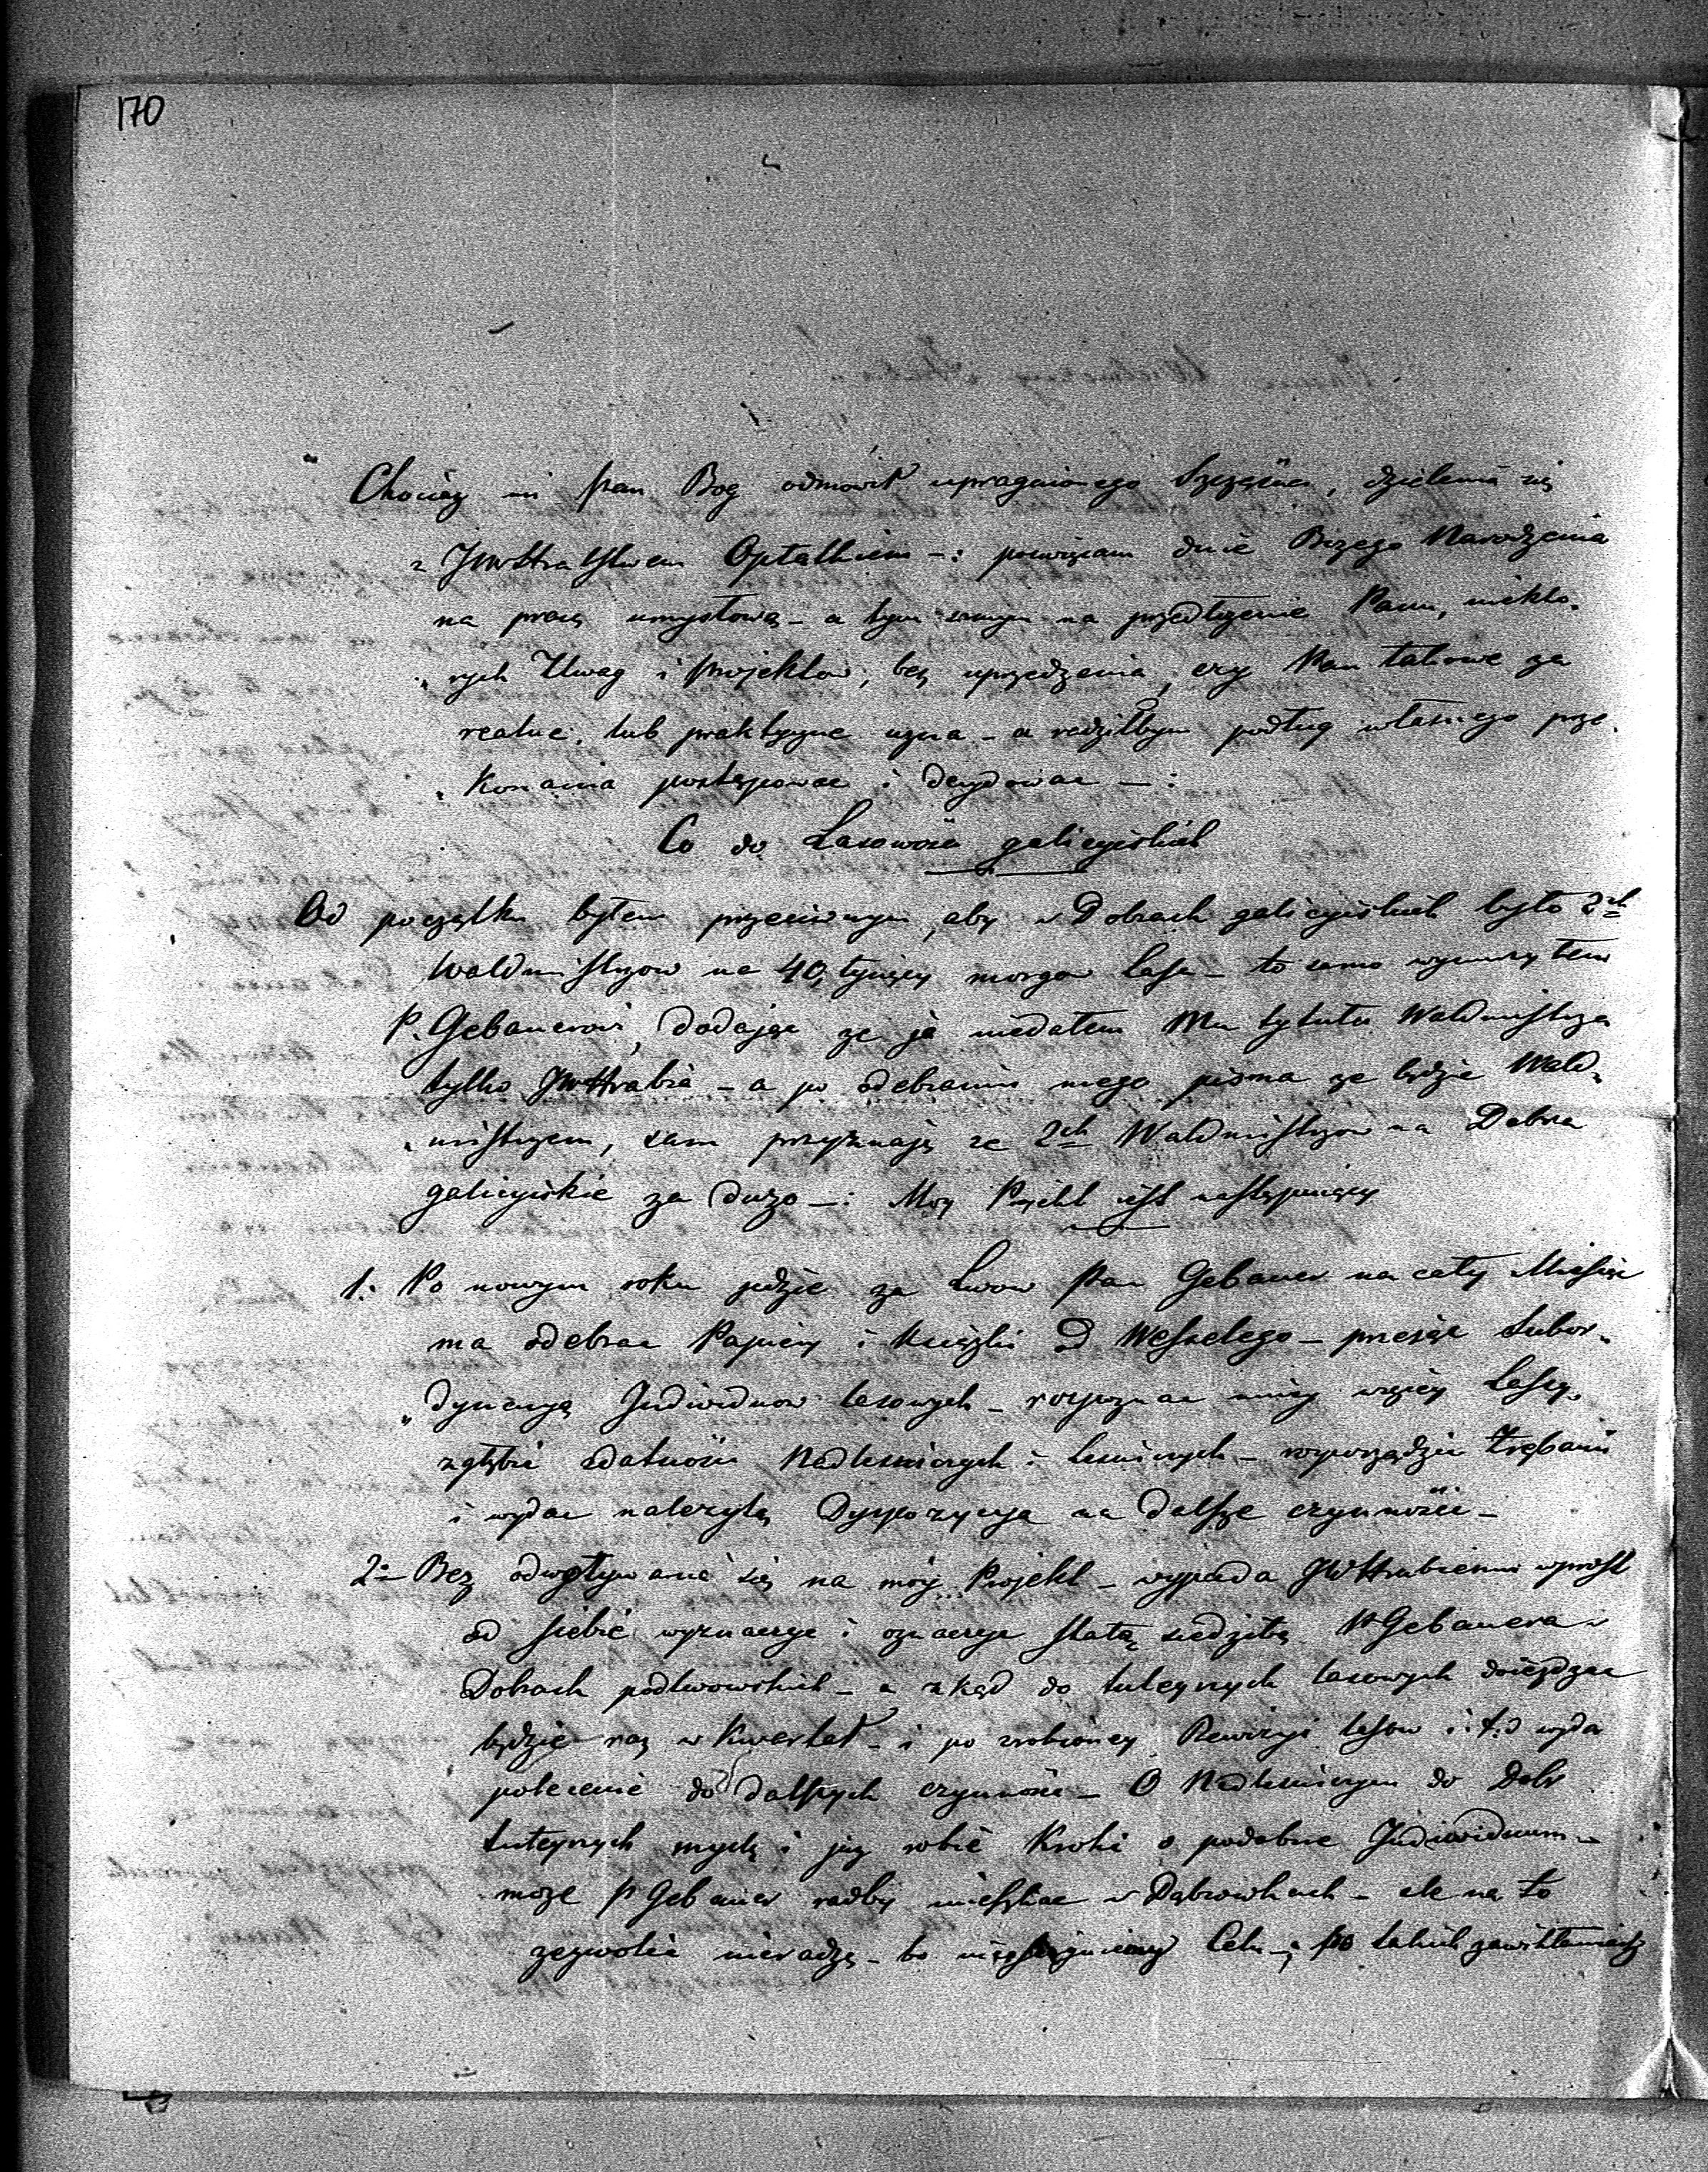 170
Chociaz mi pan Bog odmówił upragnionego Szczęścia, dzielenia się
z JWHrabstwem Opłatkiem —: poswięcam dnie Bożego Narodzenia
na pracę umysłową – a tym samym na przedłożenie Panu, niektó„
„rych Uwag i projektow, bez uprzedzenia, czy Pan takowe za
realne, lub praktyczne uzna – a radziłbym podług własnego prze„
„konania postępowac i decydowac —:
Co do Lasowości galicyiskich
Od początku byłem przeciwnym, aby w Dobrach galicyiskich było 2ch
Waldmistrzow na 40, tysięcy morgow lasu – to samo wymierzyłem
P. Gebauerowi, dodając ze ja niedałem Mu tytułu Waldmistrza
tylko JWHrabia – a po odebraniu mego pisma ze będzie Wald„
„mistrzem, sam przyznaję ze 2ch Waldmistrzow na Dobra
galicyiskie za duzo —: Moy Projekt jest następujący
1: Po nowym roku jedzie za Lwow Pan Gebauer na cały Miesiąc
ma odebrac Papiery i Książki od Wesselego – przejąc Subor„
„dynacyą Indiwiduow lasowych – rozpoznac mniej więcej Lasy,
zgłębić zdatności Nadlesniczych i lesniczych – rozporządzic Zrębami
i wydac nalezytą Dyspozycyą na dalsze czynności –
2: Bez odwoływania się na moy Projekt – wypada JWHrabiemu wprost
od siebie wyznaczyc i oznaczyc stałą siedzibę P Gebauera w
Dobrach podlwowskich – a zkąd do tuteynych lasowych dojezdzac
będzie raz w Kwartał – i po zrobioney Rewizyi lasow i: t: d wyda
polecenie do dalszych czynności – O Nadlesniczym do Dobr
tuteynych myslę i juz robię Kroki o podobne Indiwiduum –
moze P Gebauer radby mieszkac w Dąbrowkach – ale na to
zezwolic nieradzę – bo Celu – po takich